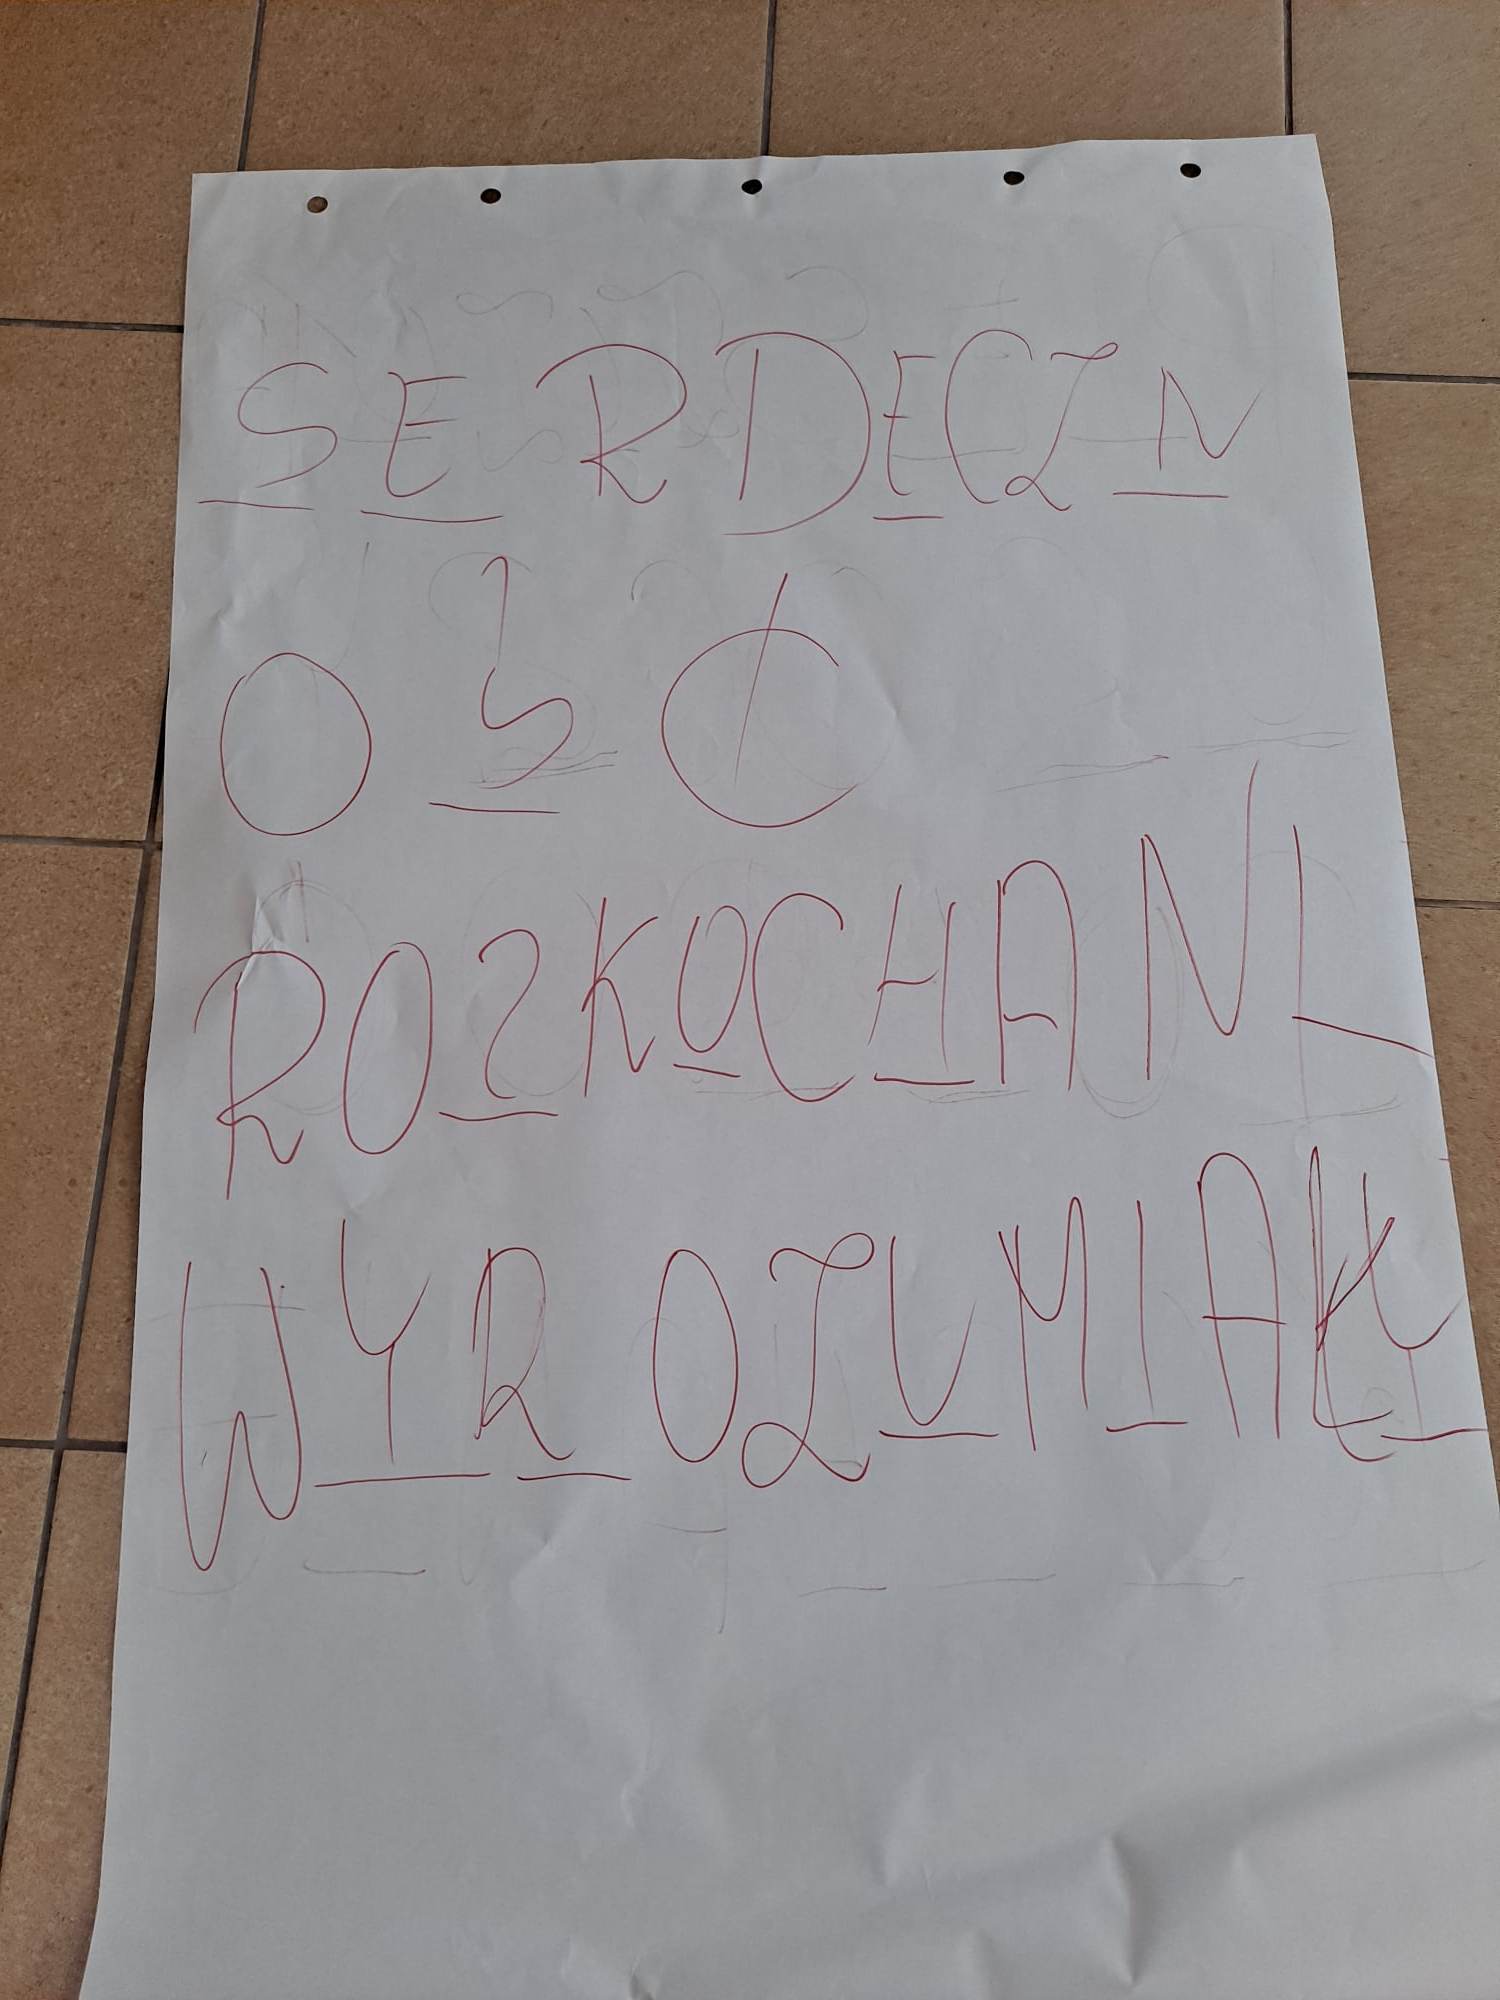 SERDECZN
OŚĆ
ROZKOCHANI
WYROZUMIAŁY